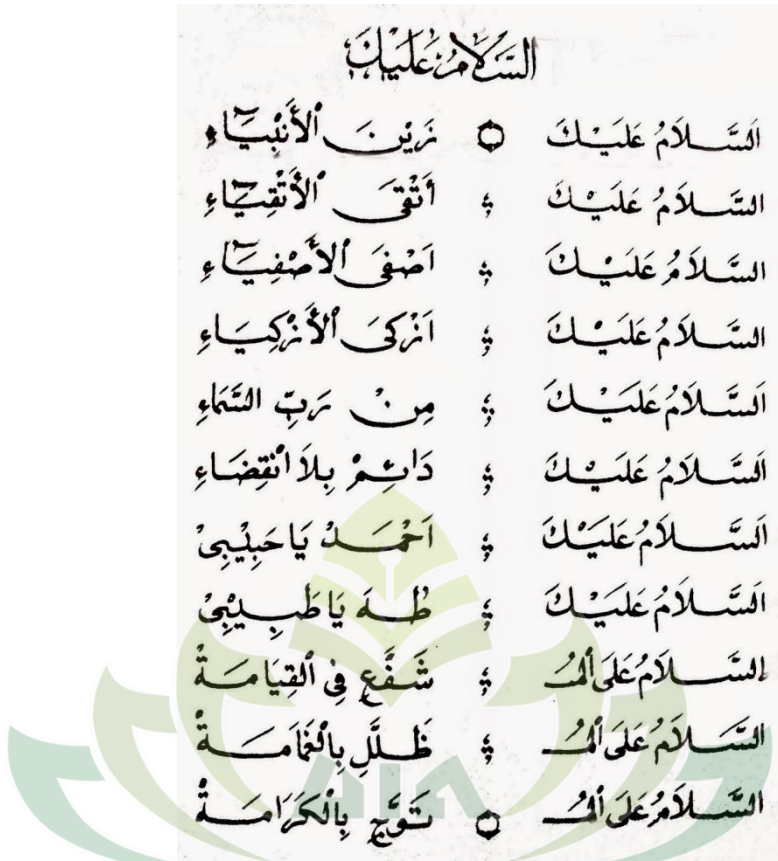 السَّلَامُ عَلَيْكَ
اَلسَّلاَمُ عَلَيْكَ زَيْنَ ٱلأَنْبِيَآءِ
السَّلاَمُ عَلَيْكَ أَتْقَى ٱلأَتْقِيَآءِ
السَّلاَمُ عَلَيْكَ اَصْفَى ٱلأَصْفِيَآءِ
السَّلاَمُ عَلَيْكَ اَزْكَى ٱلأَزْكِيَاءِ
اَلسَّلاَمُ عَلَيْكَ مِنْ رَبِّ السَّمَاءِ
اَلسَّلاَمُ عَلَيْكَ دَائِمْ بِلاَ انْقِضَاءِ
اَلسَّلاَمُ عَلَيْكَ اَحْمَدْ يَا حَبِيْبِىْ
اَلسَّلاَمُ عَلَيْكَ طٰهَ يَا طَبِيْبِىْ
السَّلاَمُ عَلَى ٱلْمُ شَفَّعِ فِى ٱلْقِيَامَةْ
السَّلاَمُ عَلَى ٱلْمُ ظَلَّلِ بِالْغَمَامَةْ
السَّلاَمُ عَلَى ٱلْمُ تَوَّجِ بِالْكَرَامَةْ